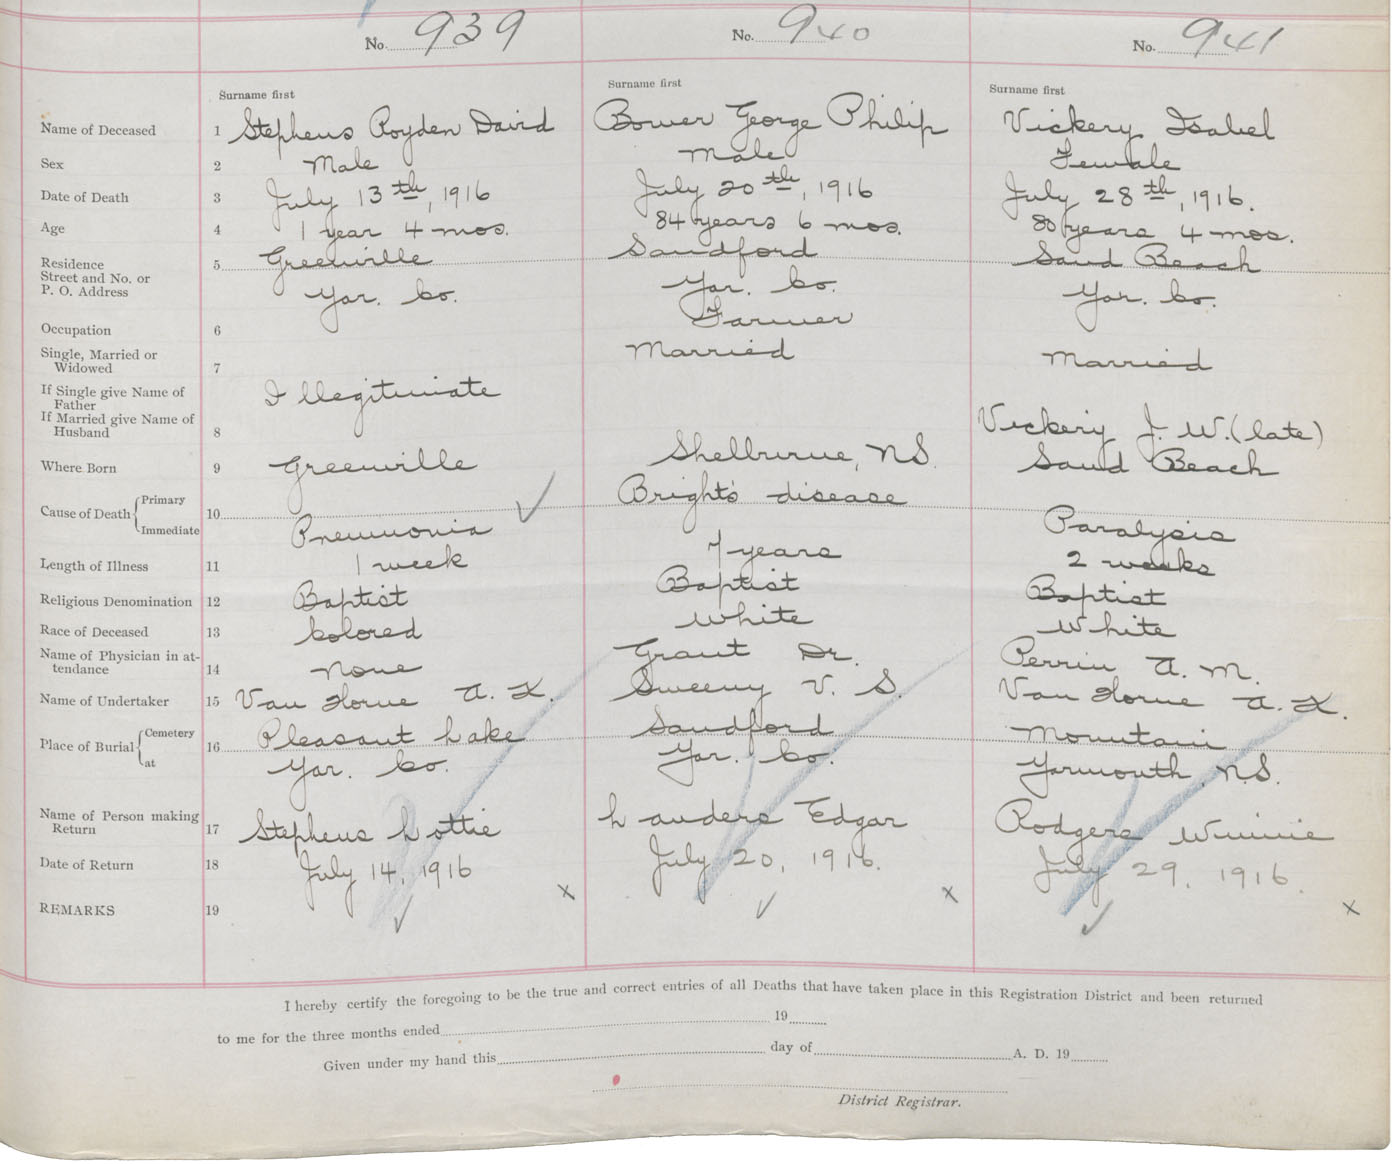 No. 939 No. 940 No. 941
Surname first Surname first Surname first
Name of Deceased 1 Stephens Royden David Bower George Philip Vickery Isabel
Sex 2 Male Male Female
Date of Death 3 July 13th, 1916 July 20th, 1916 July 28th, 1916.
Age 4 1 year 4 mos. 84 years 6 mos. 80 years 4 mos.
Residence 5 Greenville Sandford Sand Beach
Street and No. or
P. O. Address Yar. Co. Yar. Co. Yar. Co.
Occupation 6 Farmer
Single, Married or
Widowed 7 Married Married
If Single give Name of
Father Illegitimate
If Married give Name of
Husband 8 Vickery J. W. (late)
Where Born 9 Greenville Shelburne, N.S. Sand Beach
Primary Bright's disease
Cause of Death 10
Immediate Pneumonia Paralysis
Length of Illness 11 1 week 7 years 2 weeks
Religious Denomination 12 Baptist Baptist Baptist
Race of Deceased 13 Colored White White
Name of Physician in at-
tendance 14 None Grant Dr. Perrin A. M.
Name of Undertaker 15 Van Horne A. K. Sweeny V. S. Van Horne A. K.
Cemetery Pleasant Lake Sandford Mountain
Place of Burial 16
at Yar. Co. Yar. Co. Yarmouth, N.S.
Name of Person making
Return 17 Stephens Lottie Landers Edgar Rodgers Winnie
Date of Return 18 July 14, 1916 July 20, 1916. July 29, 1916.
REMARKS 19 x x x
I hereby certify the foregoing to be the true and correct entries of all Deaths that have taken place in this Registration District and been returned
to me for the three months ended 19
Given under my hand this day of A. D. 19
District Registrar.